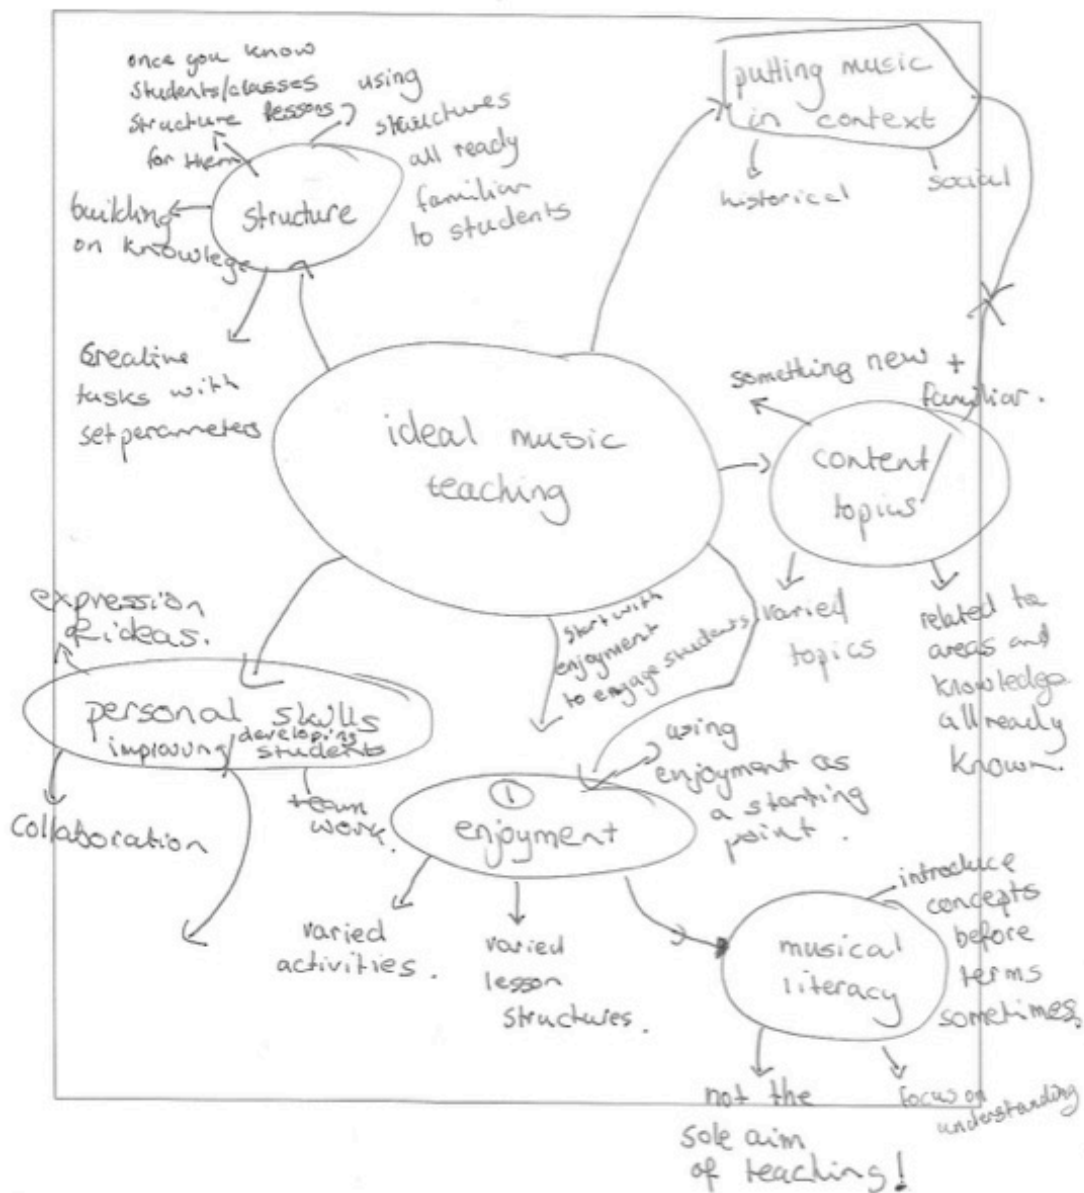 once you know
students/classes
structure lessons
for them
using
structures
all ready
familiar
to students
structure
building
on knowlege
Creative
tasks with
set perameters
putting music
in context
historical
social
ideal music
teaching
something new +
familiar.
content
topics
varied
topics
related to
areas and
knowledge
all ready
known.
start with
enjoyment
to engage students
expression
& ideas.
personal skills
improving/developing
students
collaboration
team
work.
1
enjoyment
using
enjoyment as
a starting
point.
varied
activities.
varied
lesson
structures.
musical
literacy
introduce
concepts
before
terms
sometimes.
not the
sole aim
of teaching!
focus on
understanding